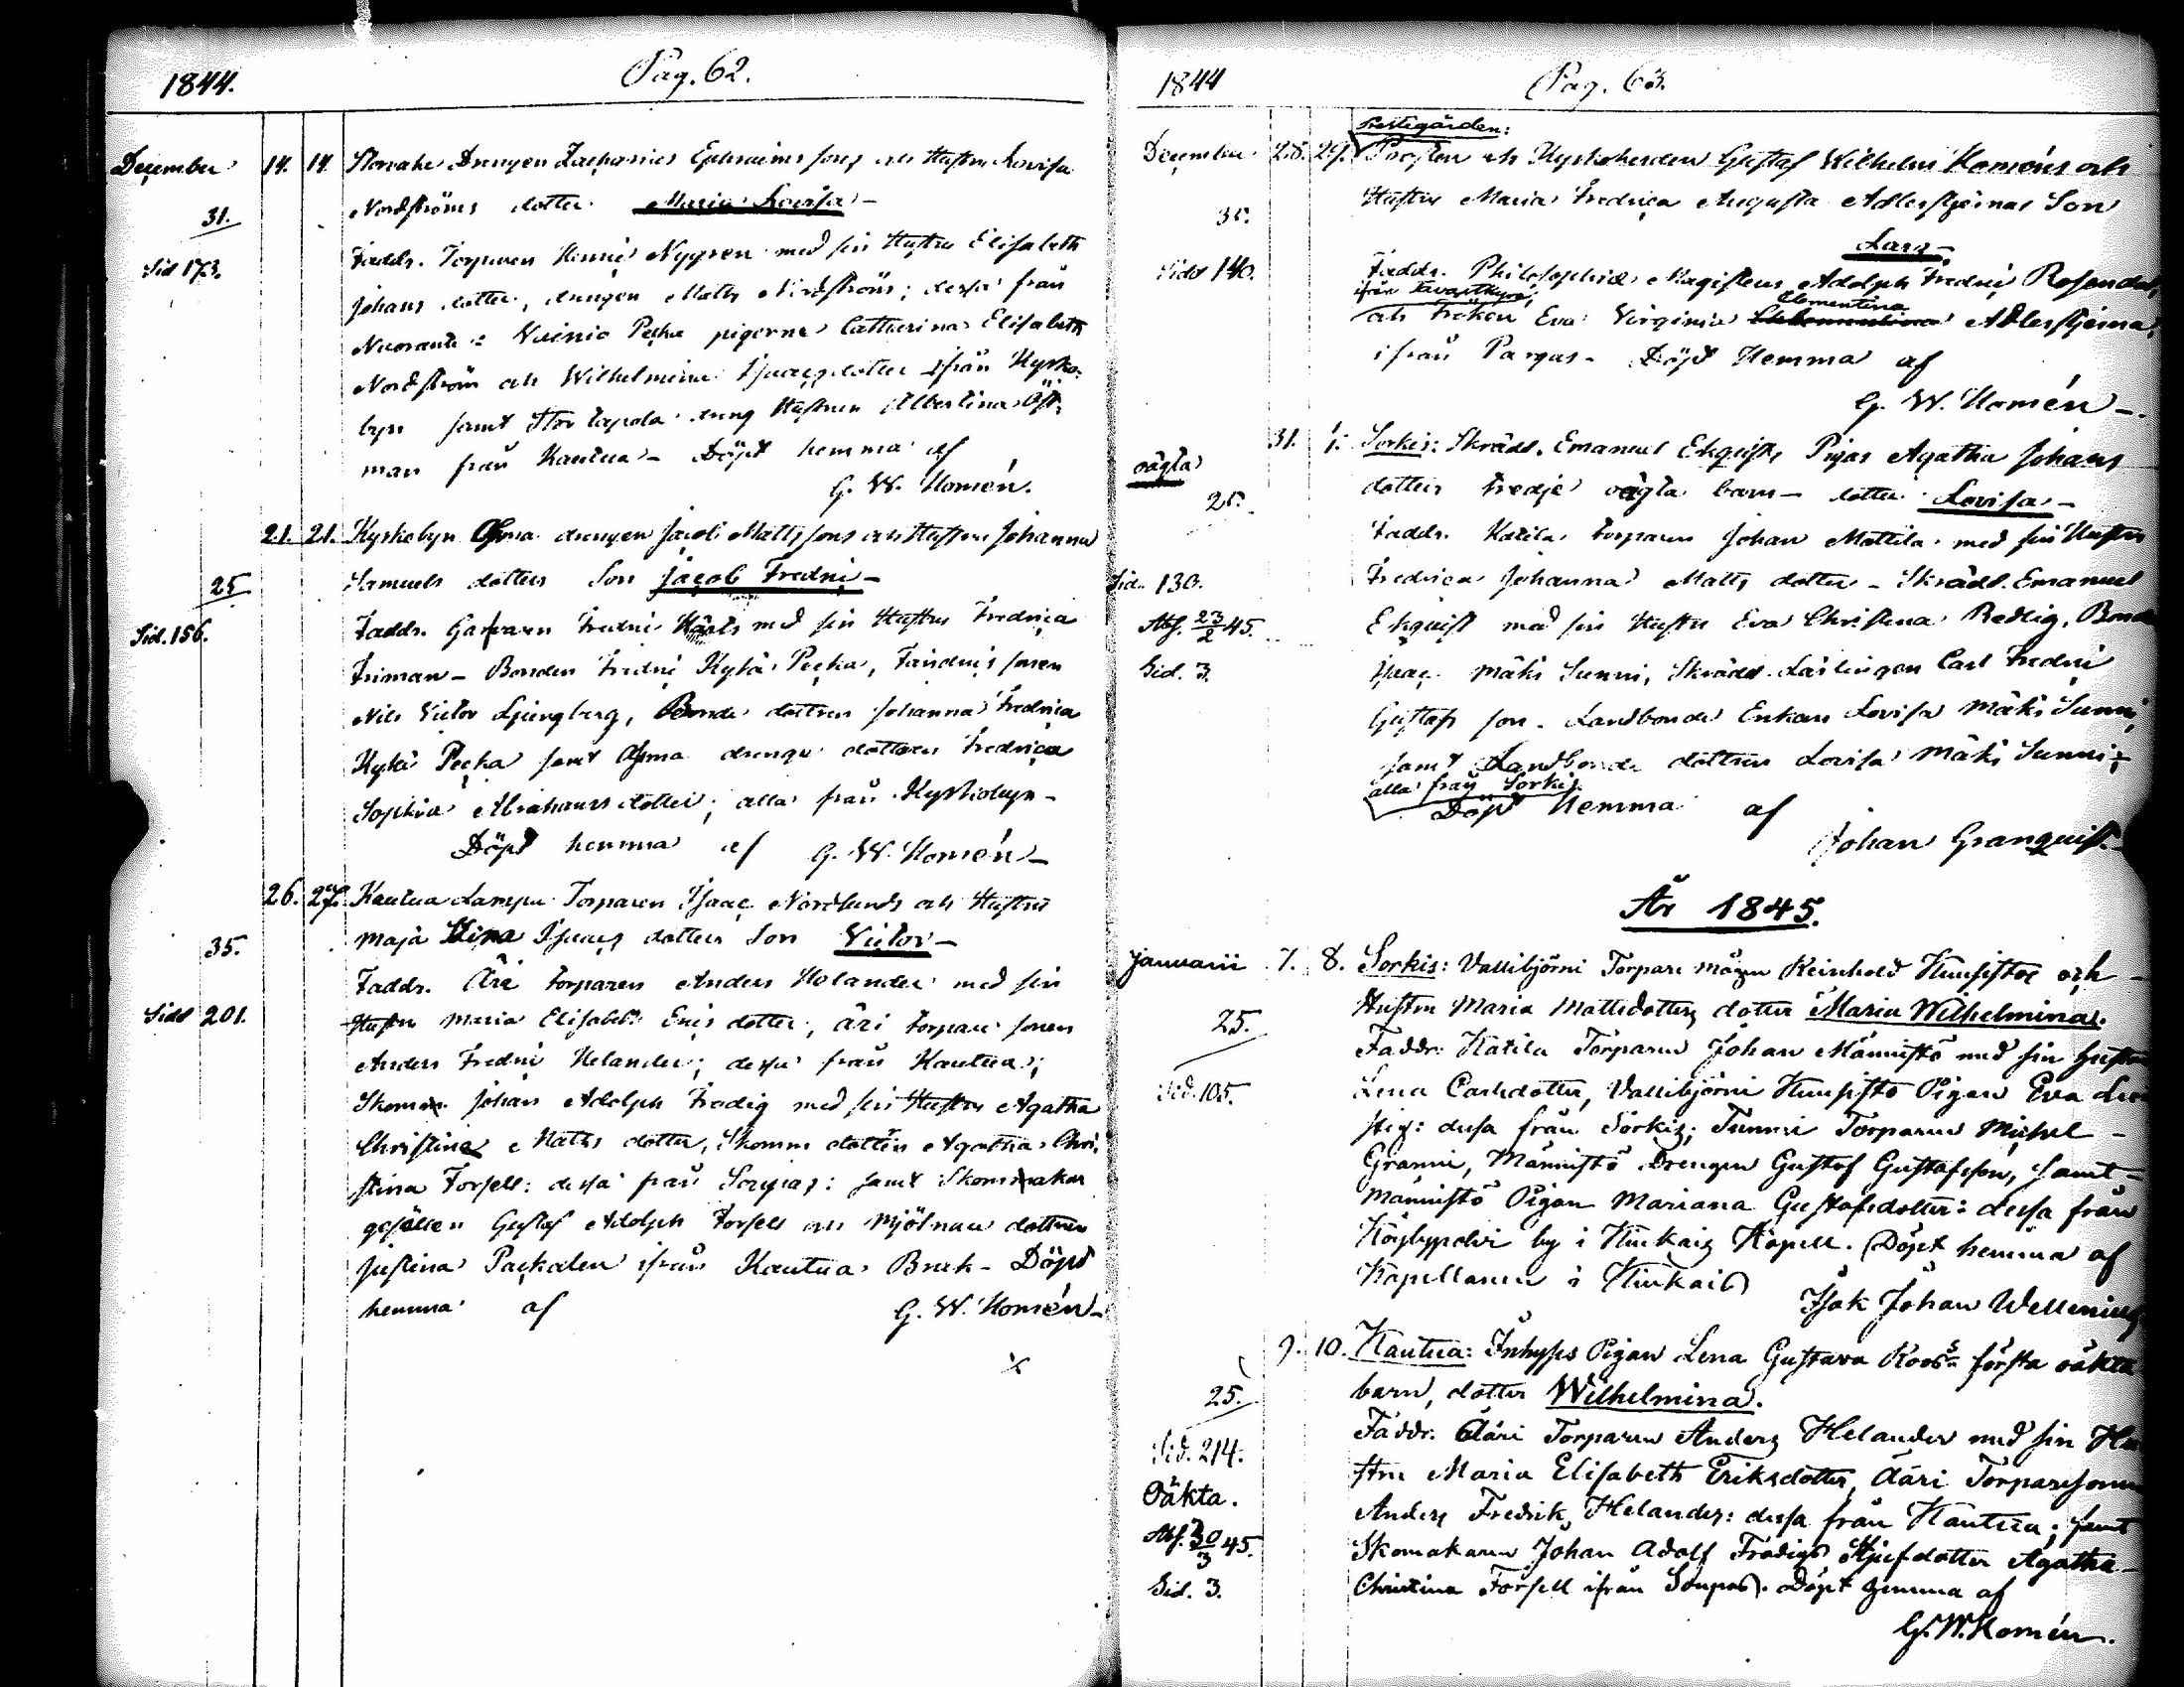 1844.
Pag. 62.
December 14. 14. Drengen Zacharias Ephraims sons och Hustru Lovisa
31.
Nordströms dotter Maria Lovisa –
Sid 173.
Faddr. Torparen Nygren med sin Hustru Elisabeth
Johans dotter, drengen Matts Nordström; dessa från
pigorna Catharina Elisabeth
Nordström och Wilhelmina Isaacs dotter ifrån Kyrko-
byn samt dreng Hustrun Albertina Öst-
man från Kautua – Döpt hemma af
G. W. Homén.
21. 21. Kyrkobyn drengen Jacob Mattssons och Hustru Johanna
25
Samuels dotters Son Jacob Fredric –
Sid. 156.
Faddr. Garfvaren Fredric med sin Hustru Fredrica
Friman – Bonden Fredric Pecka, sonen
Nils Victor Ljungberg, Bonde dottren Johanna Fredrica
Pecka samt drenge dottren Fredrica
Sophia Abrahams dotter; alla från Kyrkobyn –
Döpt hemma af G. W. Homén –
26. 27. Kautua Lampu Torparen Isaac Nordlunds och Hustru
35.
Maja Isaacs dotters Son Victor –
Sid 201.
Faddr. Äri torparen Anders Helander med sin
Hustru Maria Elisabeth Erics dotter, Äri torpare sonen
Anders Fredric Helander; dessa från Kautua;
Skomm. Johan Adolph Fredig med sin Hustru Agatha
Christina Matts dotter, Skomm. dottren Agatha Chri-
stina Forsell: dessa från samt Skomakar
gesällen Gustaf Adolph Forsell och Mjölnare dottren
Justina ifrån Kautua Bruk – Döpt
hemma af G. W. Homén –
x
1844
Pag. 63.
Prestegården:
December 28. 29. Prosten och Kyrkoherden Gustaf Wilhelm Homéns och
Hustru Maria Fredrica Augusta Adlerstjernas Son
Lars –
Sid 140.
Faddr. Philosophiæ Magistern Adolph Fredric
ifrån Tavastkyro; Clementina
och Fröken Eva Virginia Adlerstjerna,
ifrån Pargas – Döpt Hemma af
G. W. Homén –.
31. 1. Sorkis: Skrädd. Emanuel Ekquists, Pigas Agatha Johans
oägta
dotters tredje oägta barn – dotter Lovisa –
25.
Faddr. Katila torparen Johan Mattila med sin Hustru
Sid. 130.
Fredrica Johanna Matts dotter – Skrädd. Emanuel
Abs. 23/2 45.
Ekquist med sin Hustru Eva Christina Redlig, Bond
Sid. 3.
Isaac Mäki Sunni, Skrädd. Lärlingen Carl Fredric
Gustafs son – Landbonde Enkan Lovisa Mäki Sunni,
samt Landbonde dottren Lovisa Mäki Sunni;
alla från Sorkis.
Döpt Hemma af
Johan Granquist.
År 1845.
Januarii 7. 8. Sorkis: Vallibjörni Torpare mågen Reinhold och
Hustru Maria Mattsdotters dotter Maria Wilhelmina.
25.
Faddr. Katila Torparen Johan Männistö med sin hustru
Sid. 105.
Lena Carlsdotter, Vallibjörni Pigan Eva
dessa från Sorkis; Torparen Michel –
Granni, Männistö Drengen Gustaf Gustafsson, samt –
Männistö Pigan Mariana Gustafsdotter: dessa från
by i Kiukais Kapell. Döpt hemma af
Kapellanen i Kiukais
Isak Johan Wellenius
9. 10. Kautua: Inhyses Pigan Lena Gustava första oäkta
25.
barn, dotter Wilhelmina.
Sid. 214.
Faddr. Ääri Torparen Anders Helander med sin Hu
Oäkta.
stru Maria Elisabeth Eriksdotter, Ääri Torparesonen
Abs. 30/3 45.
Anders Fredrik Helander: dessa från Kautua; samt
Sid. 3.
Skomakaren Johan Adolf Fredigs Styfdotter Agatha –
Christina Forsell ifrån Döpt hemma af
G. W. Homén.